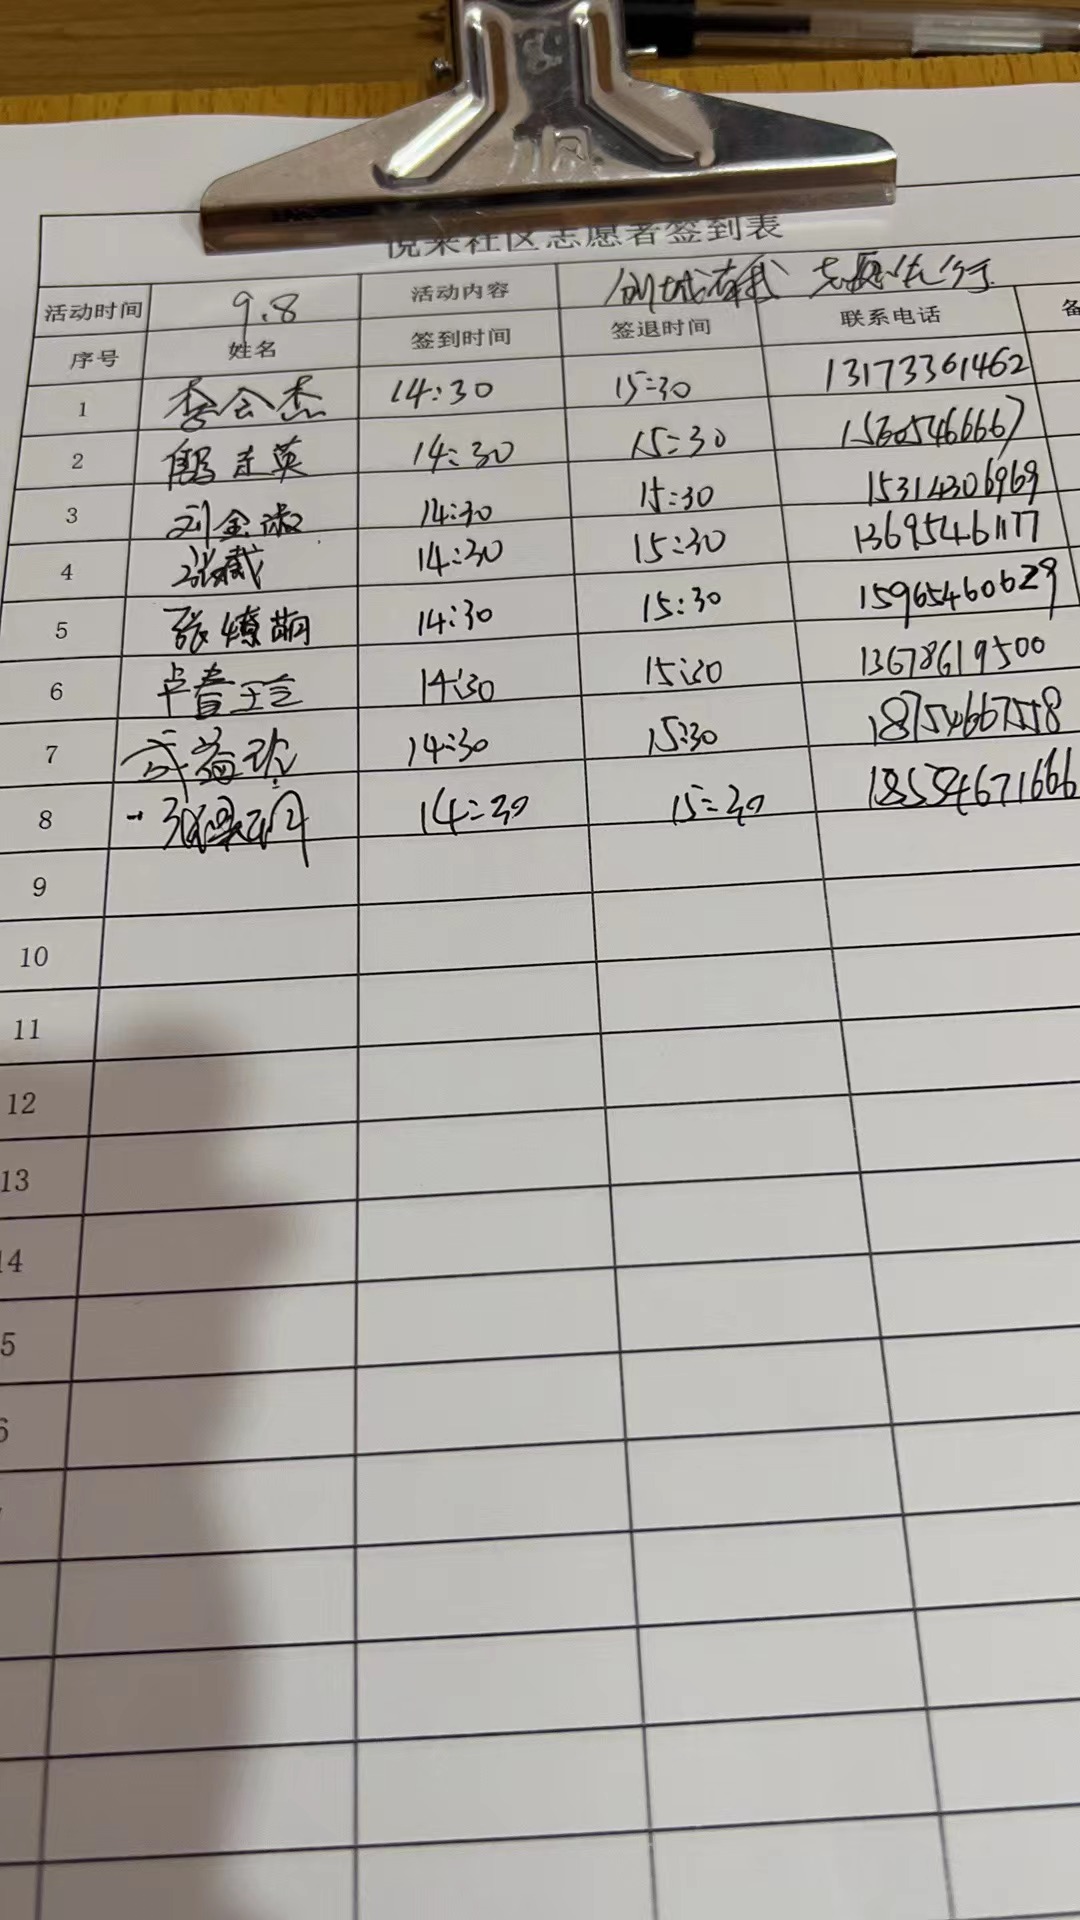 悦来社区志愿者签到表
活动时间 9.8 活动内容 创城有我 志愿先行
序号 姓名 签到时间 签退时间 联系电话 备
1 李会杰 14:30 15:30 13173361462
2 英 14:30 15:30 15605466667
3 刘金淑 14:30 15:30 15314306969
4 张威 14:30 15:30 13695461177
5 张燎萌 14:30 15:30 15965460629
6 卢春玲 14:30 15:30 13678619500
7 武益欣 14:30 15:30 18754667558
8 14:30 15:30 18554671666
9
10
11
12
13
14
5
6